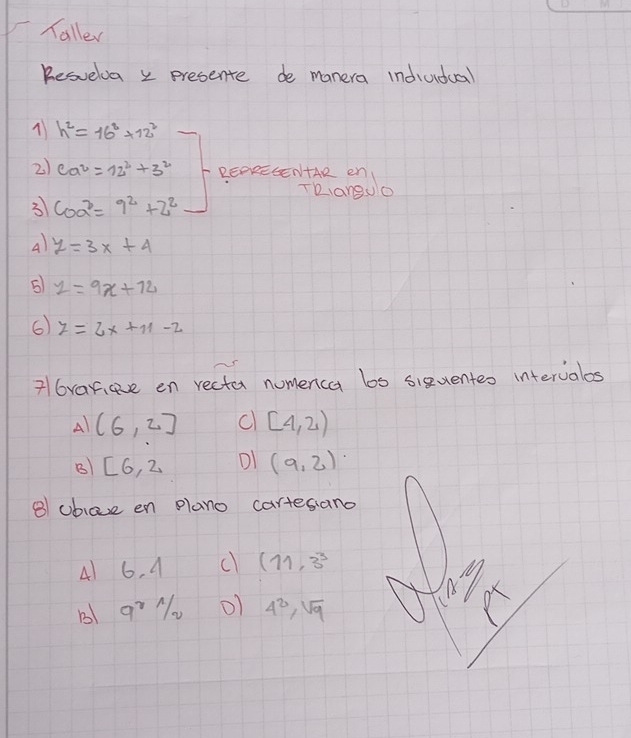 Taller
Resuelva y presente de manera individual
1) h² = 16² + 12²
2) ca² = 12² + 3²
REPRESENTAR en
TRiangulo
3) Coa² = 9² + 2²
4) y = 3x + 4
5) y = 9x + 12
6) y = 2x + 11 - 2
7) Grafique en recta numerica los siguentes intervalos
A) (6, 2] C) [4, 2)
B) [6, 2 D) (9, 2).
8) Ubique en plano cartesiano
A) 6, 1 C) (11, 3³
B) 9² 1/2 D) 4², √9